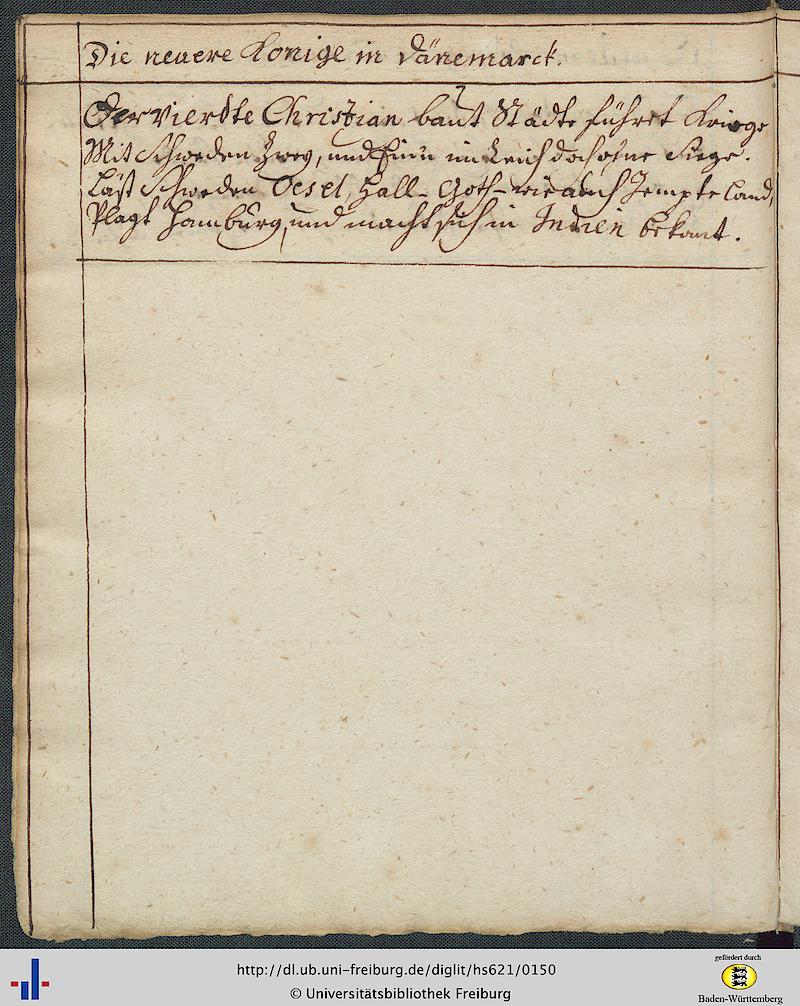 Die neuere Konige in Dänemarck.
Der Vierdte Christian baut Städte führet Kriege
Mit Schweden Zwey, und im Reich doch ohne Siege.
Läst Schweden Oesel, Hall- Goth- wie auch Jempteland,
Plagt Hamburg, und macht sich in Indien bekant.
http://dl.ub.uni-freiburg.de/diglit/hs621/0150
© Universitätsbibliothek Freiburg
gefördert durch
Baden-Württemberg